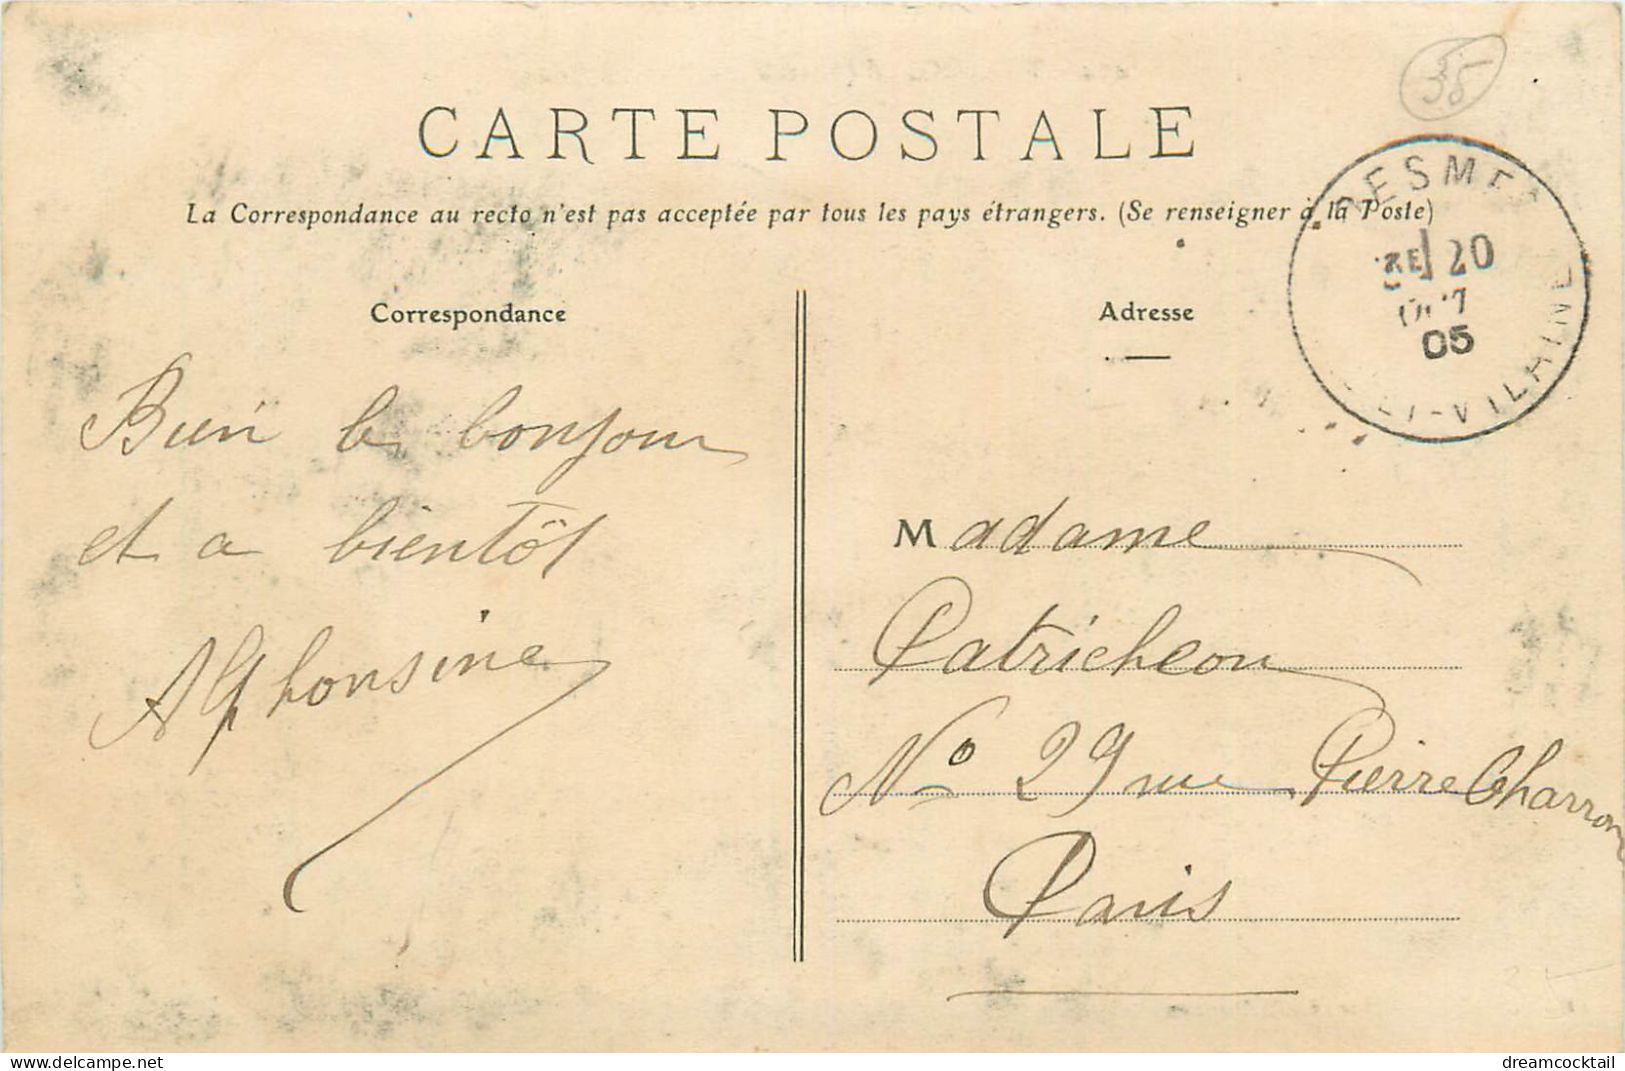 35
CARTE POSTALE
La Correspondance au recto n'est pas acceptée par tous les pays étrangers. (Se renseigner à la Poste)
ET-VILAINE
20
05
Correspondance
Adresse
Bien le bonjour
et a bientôt
Alphonsine
Madame
Patricheon
No 29 rue Pierre Charron
Paris
delcampe.net
dreamcocktail